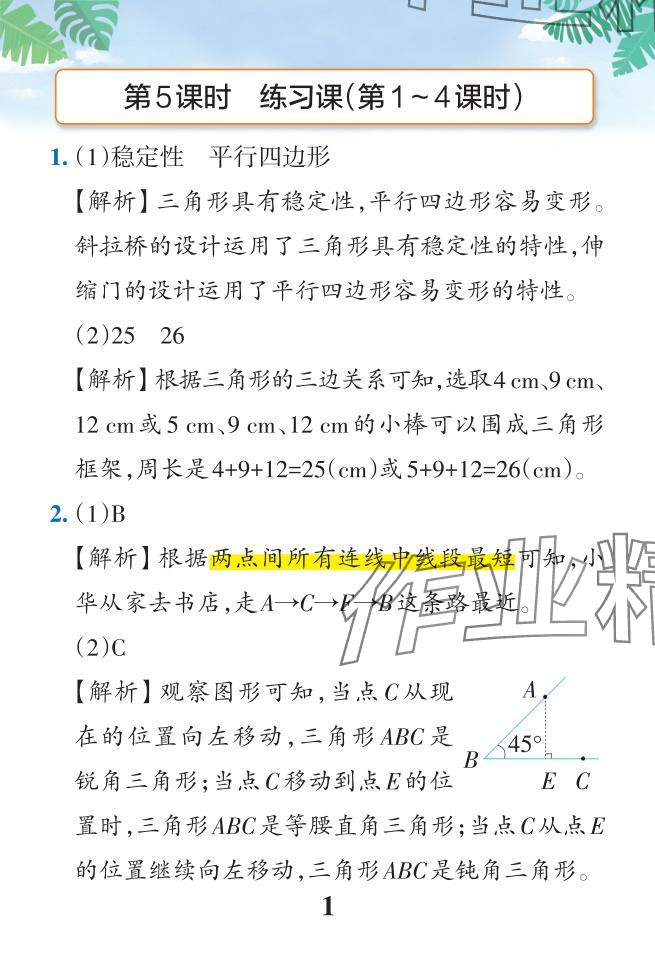 作业精
第5课时 练习课(第1~4课时)
1.(1)稳定性 平行四边形
【解析】三角形具有稳定性,平行四边形容易变形。
斜拉桥的设计运用了三角形具有稳定性的特性,伸
缩门的设计运用了平行四边形容易变形的特性。
(2)25 26
【解析】根据三角形的三边关系可知,选取4 cm、9 cm、
12 cm或5 cm、9 cm、12 cm的小棒可以围成三角形
框架,周长是4+9+12=25(cm)或5+9+12=26(cm)。
2.(1)B
【解析】根据两点间所有连线中线段最短可知,小
华从家去书店,走A→C→F→B这条路最近。
作业精
(2)C
【解析】观察图形可知,当点C从现
在的位置向左移动,三角形ABC是
锐角三角形;当点C移动到点E的位
置时,三角形ABC是等腰直角三角形;当点C从点E
的位置继续向左移动,三角形ABC是钝角三角形。
A
45°
B
E C
1